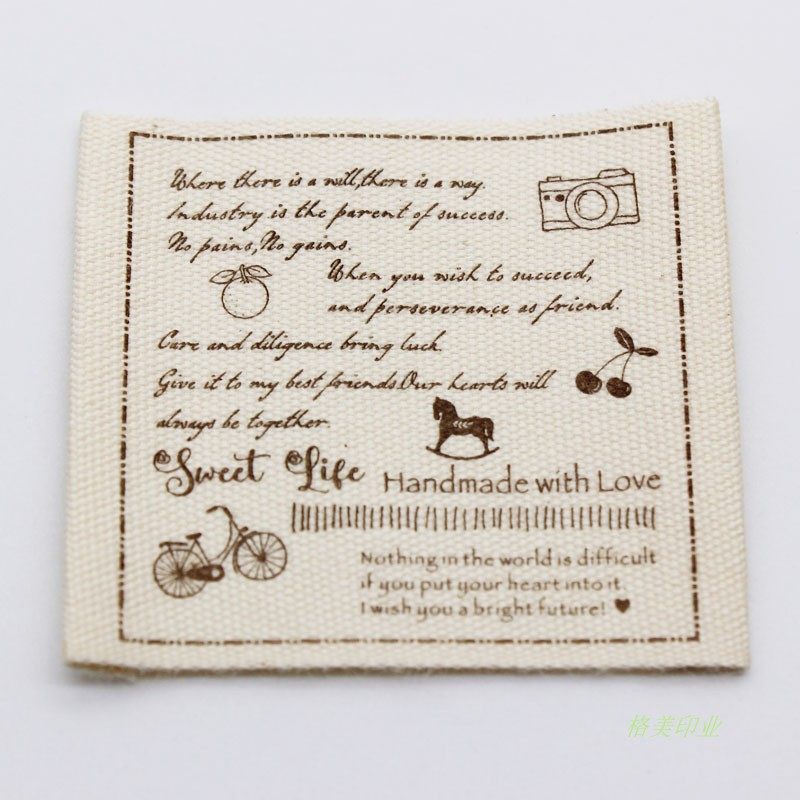 Where there is a will,there is a way.
Industry is the parent of success.
No pains,No gains.
When you wish to succeed,
and perseverance as friend.
Care and diligence bring luck.
Give it to my best friends.Our hearts will
always be together.
Sweet Life
Handmade with Love
Nothing in the world is difficult
if you put your heart into it.
I wish you a bright future!
格美印业